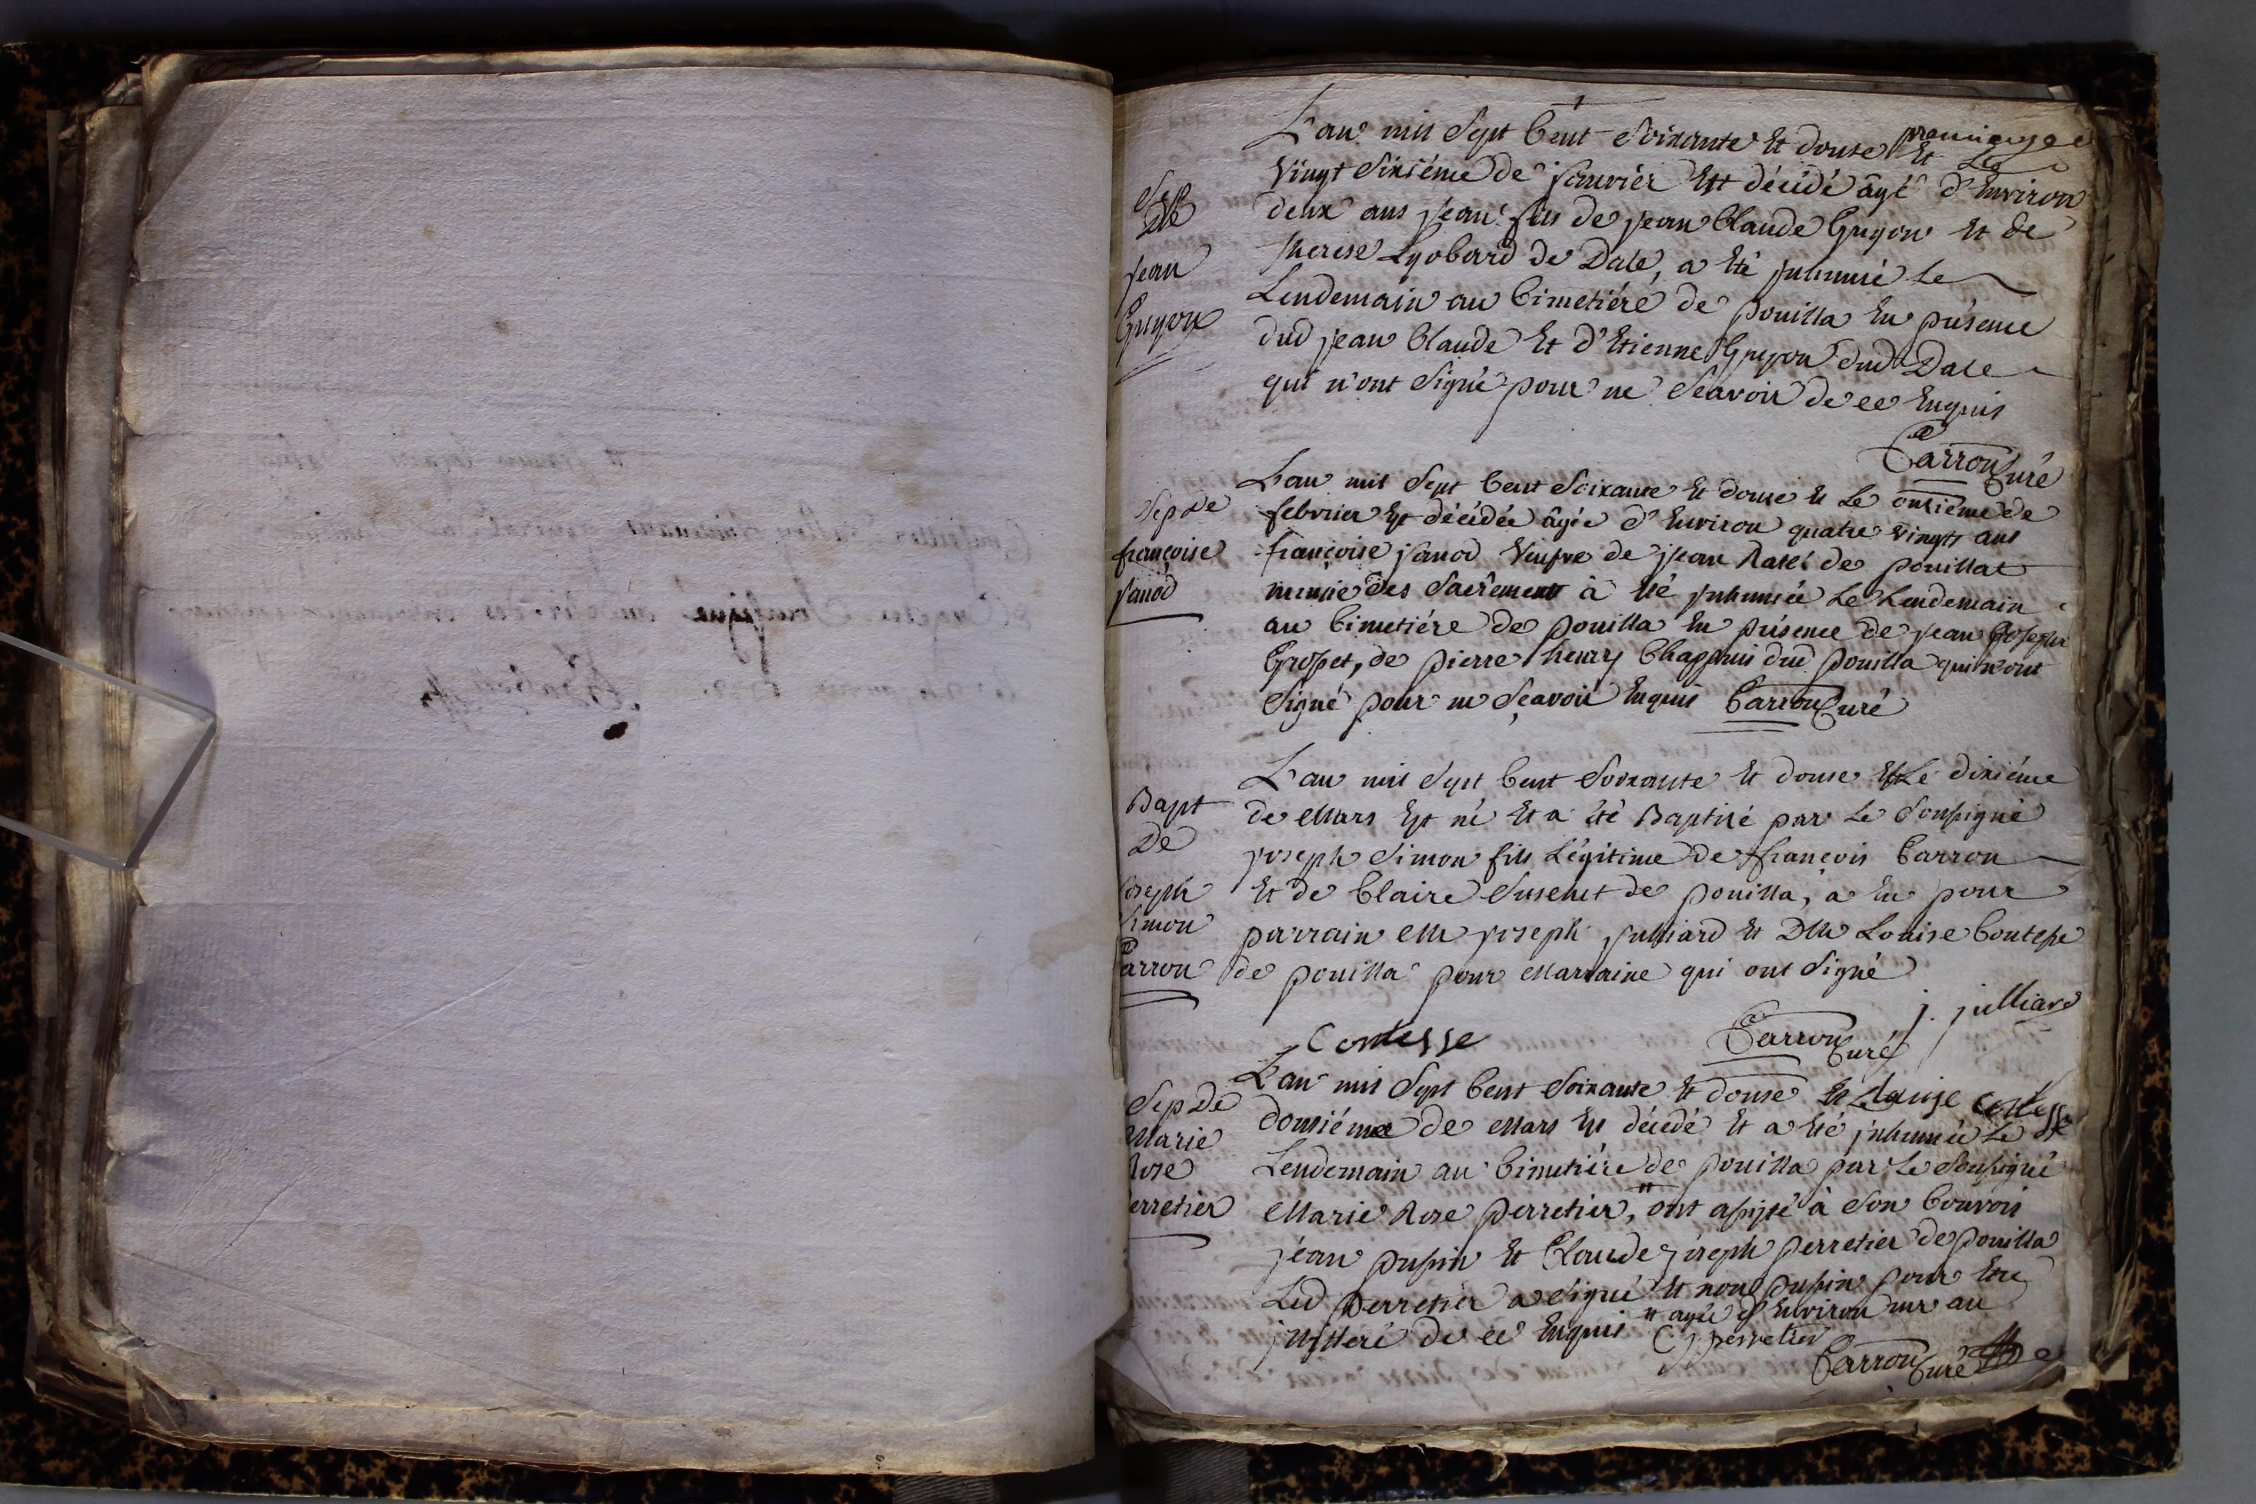 premiere page
L'an mil Sept Cent Soixante et douse et Le
vingt Sixiéme de janvier Est décédé âgé d'Environ
deux ans jean fils de jean Claude Guyon et de
therese Lyobard de Dale, a Eté inhumé Le
Lendemain au Cimetiére de pouilla En présence
dud jean Claude Et d'Etienne Guyon dud Dale
qui n'ont Signé pour ne Scavoir de ce Enquis
Carron Curé
Sep
De
jean
Guyon
L'an mil Sept Cent Soixante et douse et Le onsiéme de
febvrier Est décédée âgée d'Environ quatre vingts ans
françoise janod veufve de jean Ratel de pouillat
munie des Sacrements à Eté inhumée Le Lendemain
au Cimetiére de pouilla En présence de jean joseph
Grospet, de pierre henry Chappuis dud pouilla qui n'ont
Signé pour ne Sçavoir Enquis Carron Curé
Sep de
françoise
janod
L'an mil Sept Cent Soixante et douse et Le dixiéme
de Mars Est né Et a été Baptisé par Le Soussigné
joseph Simon fils Légitime de françois Carron
Et de Claire de pouilla, a Eu pour
parrain Mr joseph julliard et Dlle Louise Contesse
de pouilla pour Marraine qui ont Signé
j. julliard
Contesse
Carron Curé
Bapt
De
joseph
Simon
Carron
L'an mil Sept Cent Soixante et douse et Le Louise Contesse
dousiéme de Mars Est décédé Et a Eté inhumée Le
Lendemain au Cimetiére de pouilla par Le Soussigné
Marie Rose perretier, " ont assisté à Son Convois
jean pupin et Claude joseph perretier de pouilla
Led perretier a Signé et non pupin pour Etre
illitteré de ce Enquis " agée d'Environ un an
C j perretier
Carron Curé
Sep De
Marie
Rose
perretier